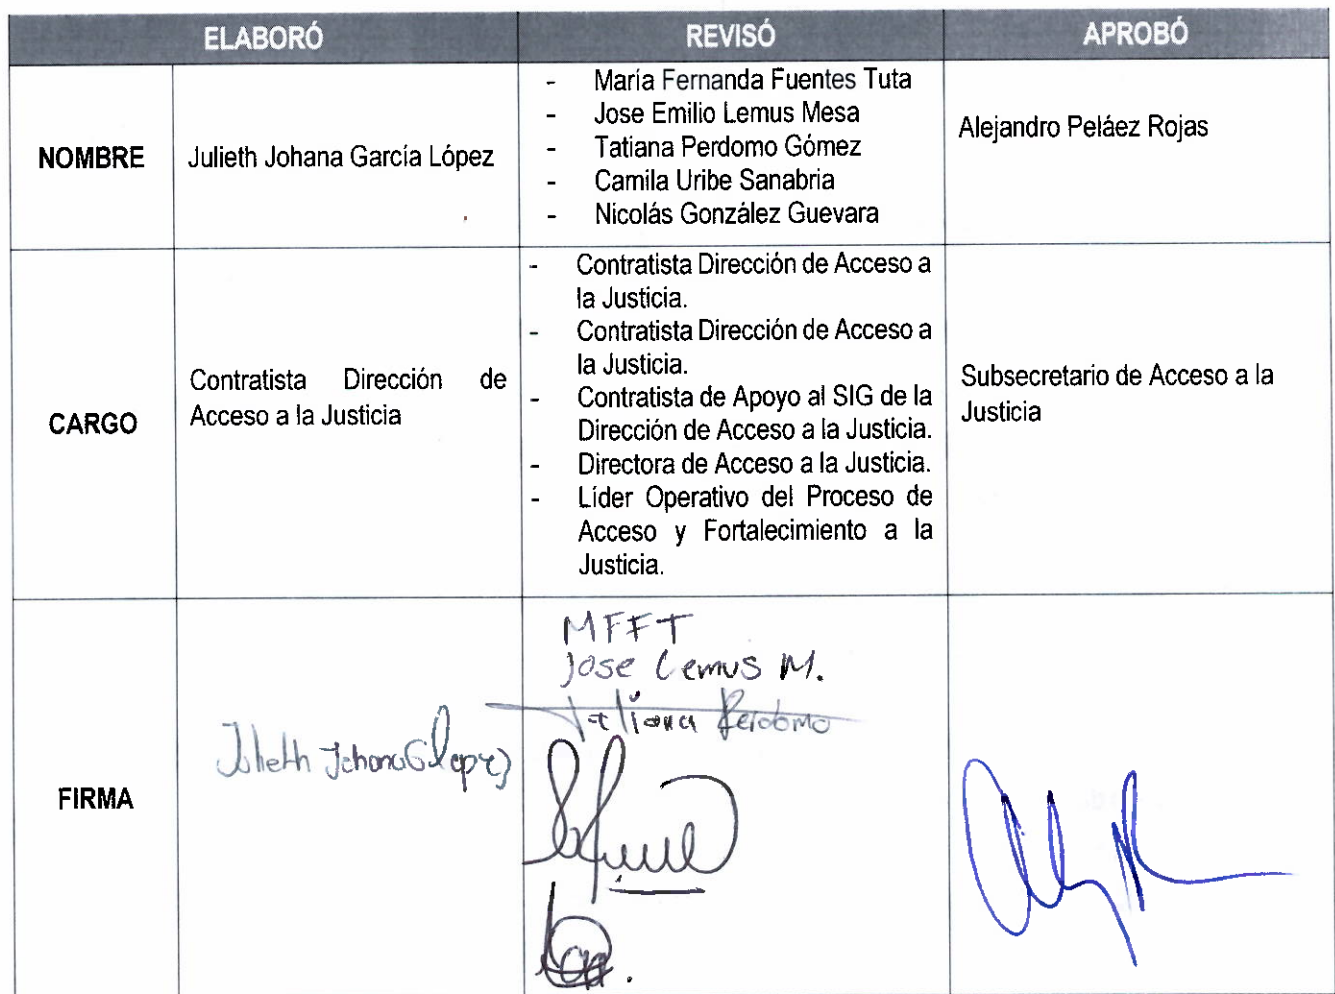 ELABORÓ
REVISÓ
APROBÓ
NOMBRE
Julieth Johana García López
- María Fernanda Fuentes Tuta
- Jose Emilio Lemus Mesa
- Tatiana Perdomo Gómez
- Camila Uribe Sanabria
- Nicolás González Guevara
Alejandro Peláez Rojas
CARGO
Contratista Dirección de
Acceso a la Justicia
- Contratista Dirección de Acceso a
la Justicia.
- Contratista Dirección de Acceso a
la Justicia.
- Contratista de Apoyo al SIG de la
Dirección de Acceso a la Justicia.
- Directora de Acceso a la Justicia.
- Líder Operativo del Proceso de
Acceso y Fortalecimiento a la
Justicia.
Subsecretario de Acceso a la
Justicia
FIRMA
Julieth Johana G López
MFFT
Jose Lemus M.
Tatiana Perdomo